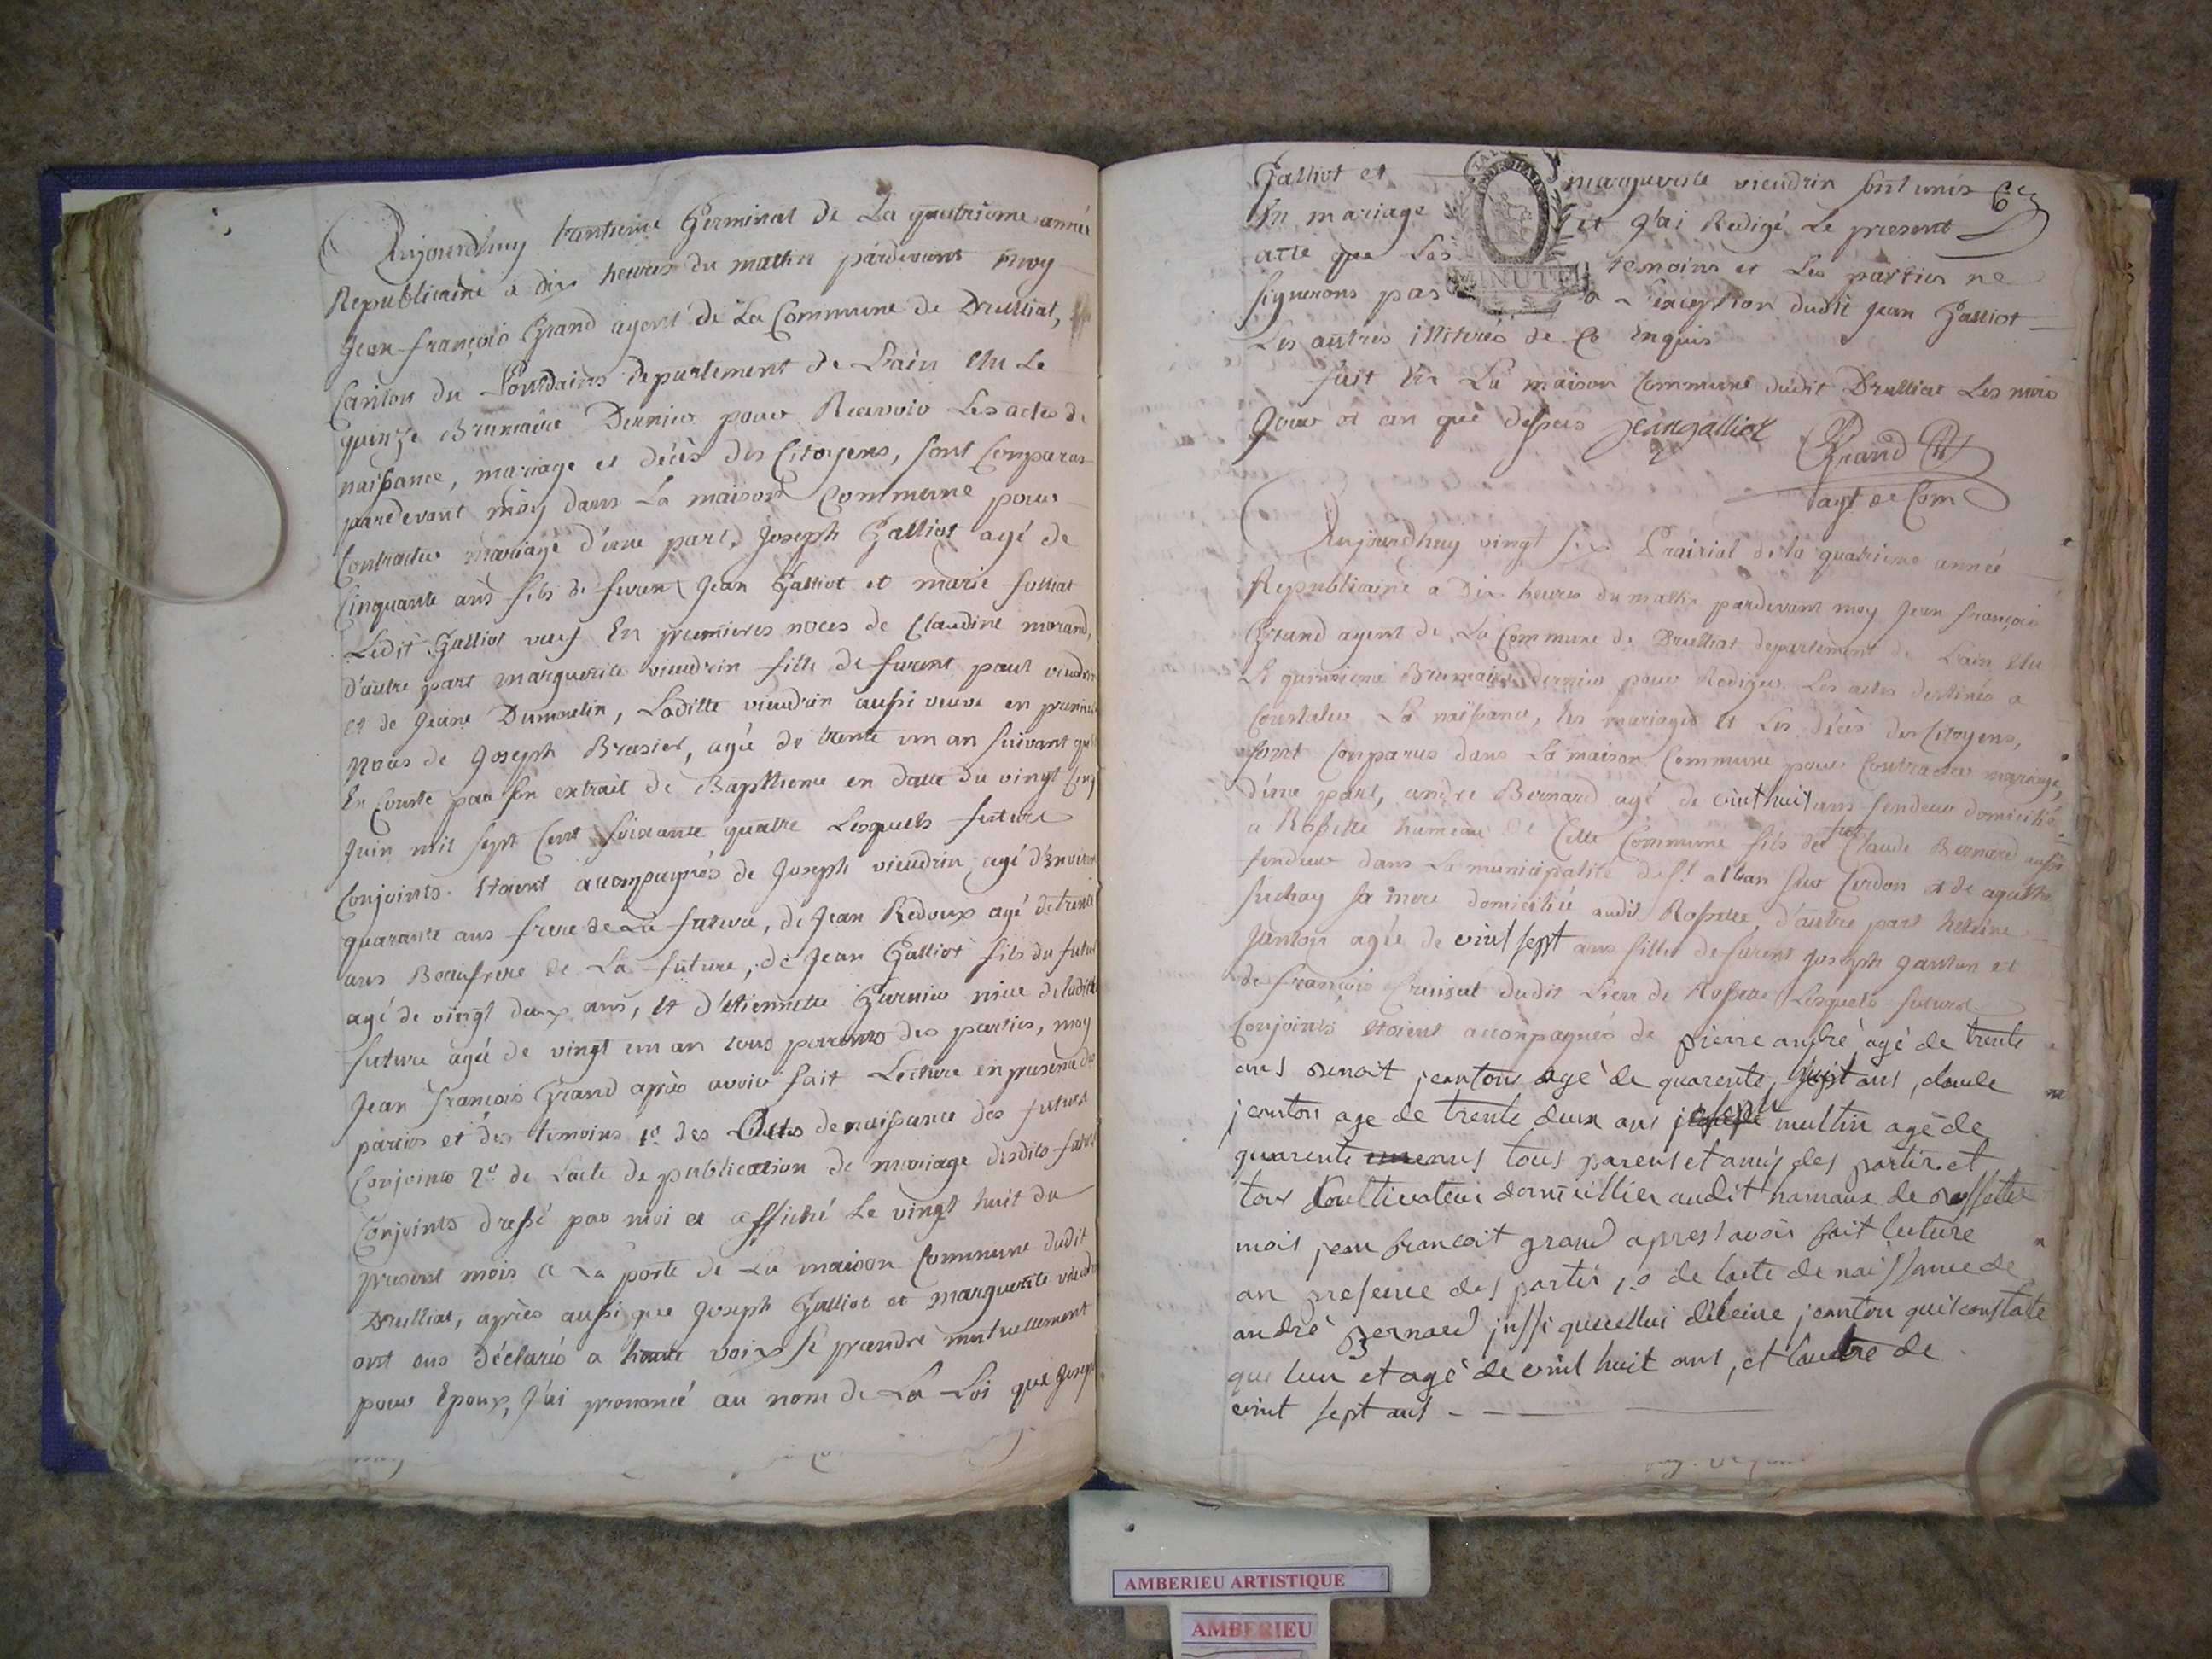 Aujourdhuy trantieme Germinal de La quatrieme année
Republicaine a dix heures du matin pardevant moy
Jean-françois Grand agent de La Commune de Druilliat,
Canton du Pontdains departement de L'ain Elu Le
quinze Brumaire Dernier pour Recevoir Les actes de
naissance, mariage et décès des Citoyens, sont Comparus
pardevant moy dans La maison Commune pour
Contracter mariage d'une part, Joseph Galliot agé de
Cinquante ans fils de furent Jean Galliot et marie folliat
Ledit Galliot veuf En premieres noces de Claudine morand,
d'autre part marguerite vieudrin fille de furent paul vieudrin
et de Jeane Dumoulin, Laditte vieudrin aussi veuve en premiere
noces de Joseph Brasier, agée de trente un an suivant qu'il
En Conste par son extrait de Baptheme en datte du vingt Cinq
Juin mil sept Cent soixante quatre Lesquels futurs
Conjoints Etoient accompagnés de Joseph vieudrin agé d'Environ
quarante ans frere de La future, de Jean Redoux agé de trente
ans Beaufrere de La future, de Jean Galliot fils du futur
agé de vingt deux ans, et d'Etiennette Gurnier niece de laditte
future agée de vingt un an tous parents des parties, moy
Jean François Grand après avoir fait Lecture en presence des
parties et des temoins 1º des Actes de naissance des futurs
Conjoints 2º de Lacte de publication de mariage desdits futurs
Conjoints dressé par moi et affiché Le vingt huit du
present mois a La porte de La maison Commune dudit
Druilliat, après aussi que Joseph Galliot et marguerite vieudrin
ont eus déclarés a haute voix se prandre mutuellement
pour Epoux, J'ai prononcé au nom de La Loi que Joseph
Galliot et marguerite vieudrin sont unis
En mariage et J'ai Redigé Le present
acte que Les temoins et Les parties ne
signerons pas a L'exception dudit Jean Galliot
Les autres illiterés de Ce Enquis
MINUTE
fait En La maison Commune dudit Druilliat Les mois
Jour et an que dessus jean galliot
Grand
agt de Com
Aujourdhuy vingt six Prairial de la quatrieme année
Republicaine a Dix heures du matin pardevant moy Jean françois
Grand agent de La Commune de Druilliat departement de L'ain Elu
Le quinzieme Brumaire dernier pour Rediger Les actes destinés a
Constater La naissance, les mariages et Les décès des Citoyens,
sont Comparus dans La maison Commune pour Contracter mariage,
d'une part, andré Bernard agé de vint huit ans fendeur domicilié
a Rossette hameau de Cette Commune fils de feu Claude Bernard aussi
fendeur dans La municipalité de St alban sur Cerdon et de agathe
suchay sa mere domiciliée audit Rossette, d'autre part heleine
Janton agée de vint sept ans fille de furent Joseph Janton et
de françoise dudit Lieu de Rossette Lesquels futurs
Conjoints Etoient accompagnés de pierre andré àgé de trente
ans Benoit jeanton agé de quarente huit ans, claude
jeanton age de trente deux ans joseph multin agé de
quarente ans tous parens et amis des partie et
tous Coultivateur domicillier audit hamaux de Rossettes
mois jean francoit grand apres lavoir fait lecture
an presence des partis 1º de lacte de naissance de
andré Bernard jussi que cellui dèleine jeanton qui constate
que lun et agé de vint huit ans, et lautre de
vint sept ans
AMBERIEU ARTISTIQUE
AMBERIEU